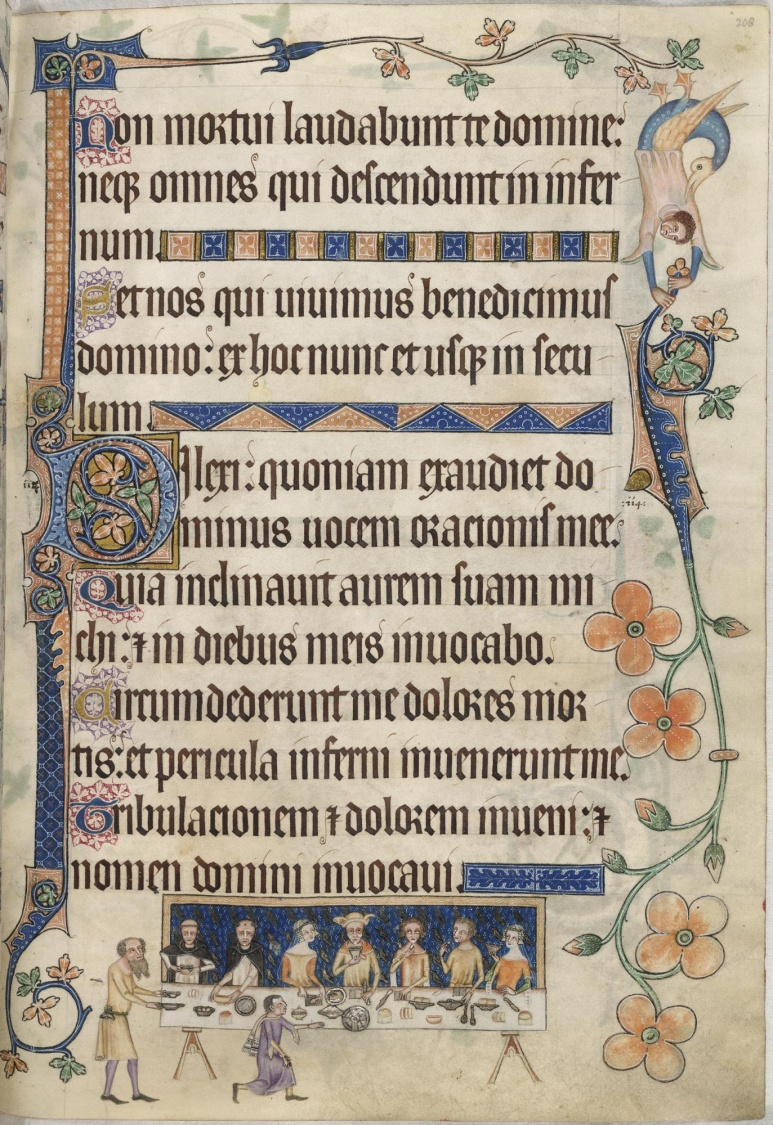 208
Non mortui laudabunt te domine:
neq3 omnes qui descendunt in infer
num.
Set nos qui uiuimus benedicimus
domino: ex hoc nunc et usq3 in secu
lum.
Dilexi: quoniam exaudiet do
minus uocem orationis mee.
Quia inclinauit aurem suam mi
chi: ⁊ in diebus meis inuocabo.
Circumdederunt me dolores mor
tis: et pericula inferni inuenerunt me.
Tribulacionem ⁊ dolorem inueni: ⁊
nomen domini inuocaui.